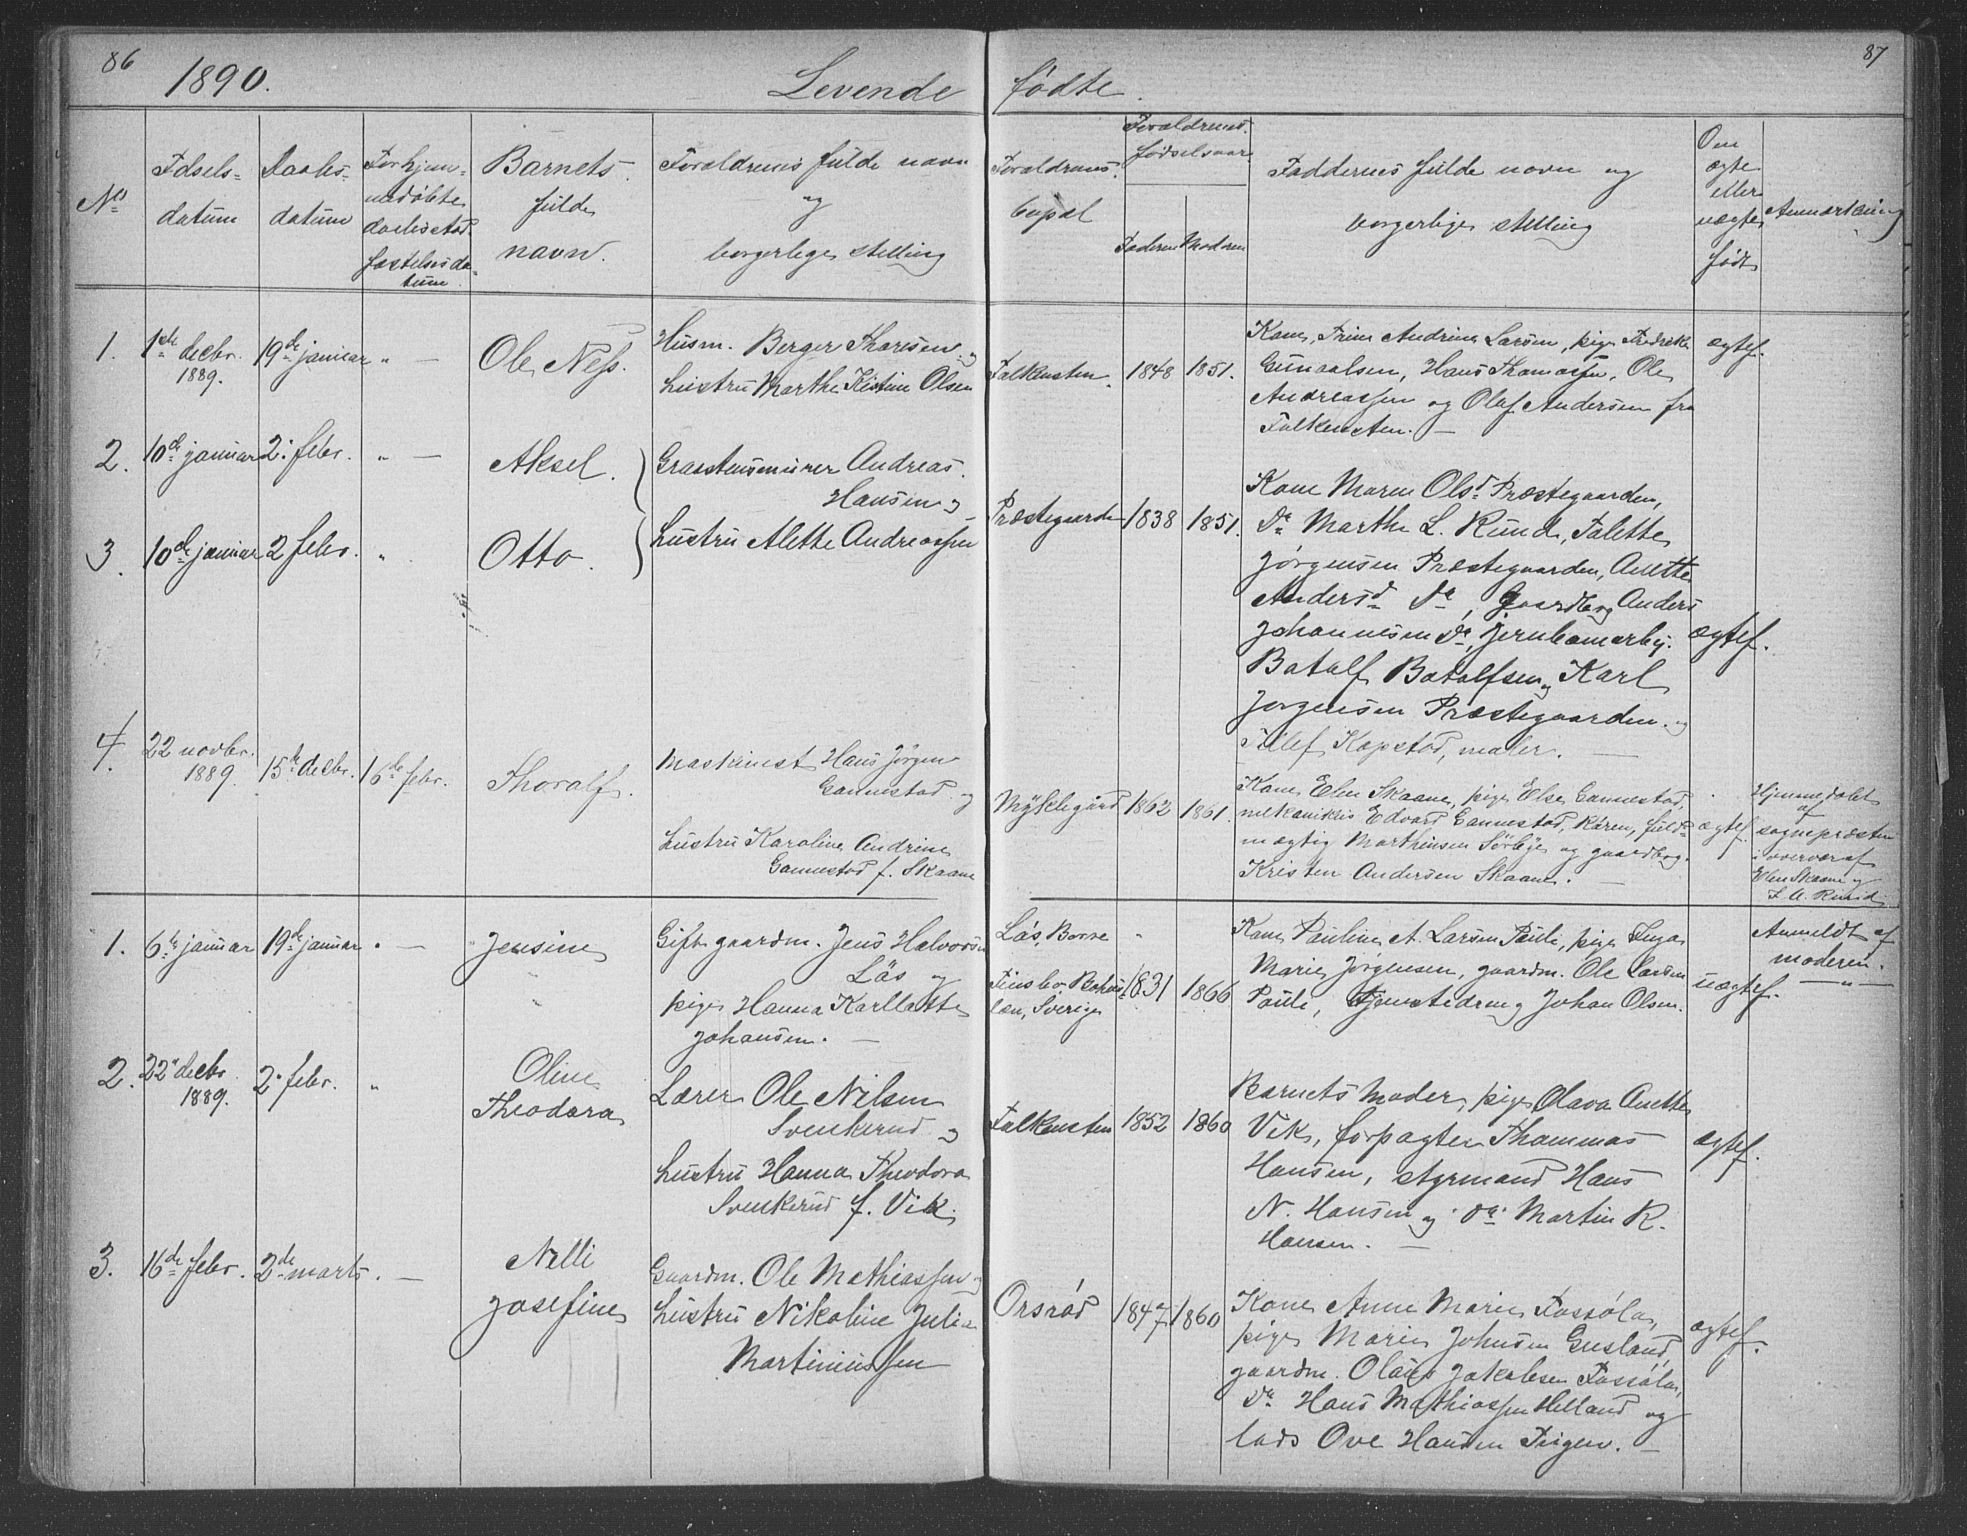 86
1890.
Levende fødte.
87
No
Fdsels-
datum
Daabs-
datum
For hjem-
medøbte
daabsstad.
fæstelsesda-
tum
Barnets
fulde
navn.
Foraldrenes fulde navn
og
borgerlige stelling
Foraldrenes
bopæl
Foraldrenes
fødselsaar
Faderen Moderen
Faddernes fulde navn og
borgerlige stelling
Om
ægte
eller
uægte
født
Anmærkning
1. 1de decbr.
1889.
19de januar " —
Ole Ness.
Husm. Berger Thoresen og
hustru Marthe Kistine Olsen
Falkensten. 1848 1851.
Kone, Trine Andrine Larsen, pige Fredrikke
Gunaalsen, Hans Thomassen, Ole
Andreassen og Olaf Andersen fra
Falkensten. —
ægtef.
2. 10de januar 2. febr. " —
Aksel.
Graastensmurer Andreas
Hansen og
3. 10de januar 2 febr. "
Otto.
hustru Alette Andreassen
Præstegaarden 1838 1851.
Kone Maren Olsd. Præstegaarden,
Do Marthe L. Rund, Talette
Jørgensen Præstegaarden, Anette
Andersd. Do, Gaardbrg Anders
Johannesen Do, Jernbanearbj.
Batolf Batolfsen og Karl
Jørgensen Præstegaarden og
Tellef Kopstad, maler. —
ægtef.
4. 22 novbr.
1889.
15de decbr. 16de febr.
Thoralf
Maskinest Hans Jørgen
Gannestad og
hustru Karoline Andrine
Gannestad f. Skaane
Myklegård 1862 1861.
Kone Elen Skaane, pige Else Gannestad,
mekanikus Edvard Gannestad, Køren, fuld-
mægtig Marthinsen Sörbye og gaardbrg.
Kristen Andersen Skaane. —
ægtef.
Hjemmedøbt
af
sognepræsten
i overvær af
Elen Skaane og
L. A. Rund
1. 6te januar 19de januar " —
Jensine
Gift gaardm. Jens Halvorsen
Lås og
pige Hanna Karllotte
Johansen. —
Lås, Borre "
Tinsbo Bohus-
læn, Sverige
1831 1866
Kone Pauline A. Larsen Paule, pige Inga
Marie Jørgensen, gaardm. Ole Larsen
Paule, tjenestedreng Johan Olsen.
uægtef.
Anmeldt af
moderen.
— " —
2. 22de decbr.
1889.
2. febr. "
Oline
Theodora
Lærer Ole Nilsen
Svenkerud og
hustru Hanna Theodora
Svenkerud f. Vik.
Falkensten 1852 1860
Barnets Moder, pige Olava Anette
Vik, forpagter Thommas
Hansen, styrmand Hans
N. Hansen og do Martin R.
Hansen. —
ægtef.
3. 16de febr. 2de marts. —
Nelli
Josefine
Gaardm. Ole Mathiassen og
hustru Nikoline Julie
Martiniussen
Orsrød 1847 1860
Kone Anne Marie Fossøla,
pige Marie Johnsen Gusland
gaardm. Olaus Jakobsen Fossøla,
Do Hans Mathiassen Helland og
lods Ove Hansen Tegen. —
ægtef.